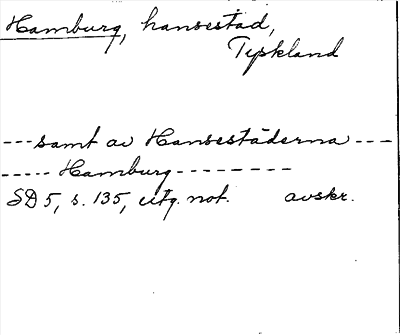 Hamburg, hansestad,
Tyskland
---samt av Hansestäderna---
-----Hamburg--------
SD 5, s. 135, utg. not. avskr.